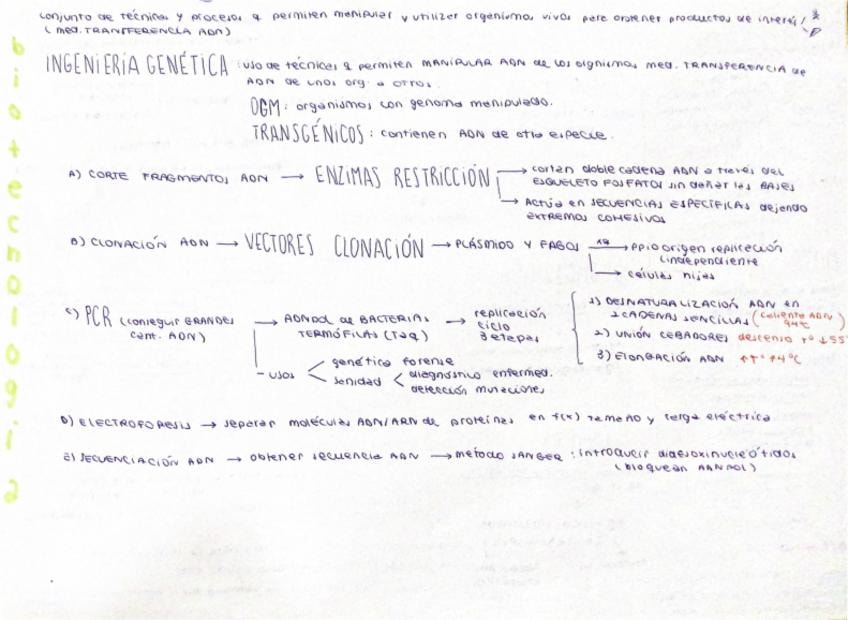 conjunto de técnicas y procesos q permiten manipular y utilizar organismos vivos para obtener productos de interés
(med. TRANSFERENCIA ADN)
INGENIERÍA GENÉTICA : uso de técnicas q permiten MANIPULAR ADN de los orgnismos med. TRANSFERENCIA de
ADN de unos org. a otros.
OGM: organismos con genoma manipulado.
TRANSGÉNICOS: contienen ADN de otra especie.
A) CORTE FRAGMENTOS ADN → ENZIMAS RESTRICCIÓN → cortan doble cadena ADN a través del
ESQUELETO FOSFATOS sin dañar las BASES
→ Actúa en SECUENCIAS ESPECÍFICAS dejando
EXTREMOS COHESIVOS
B) CLONACIÓN ADN → VECTORES CLONACIÓN → PLÁSMIDO Y FAGOS → ppio origen replicación
(independiente
→ células hijas
C) PCR (conseguir GRANDES
cant. ADN)
→ ADNpol de BACTERIAS
TERMÓFILAS (Taq)
→ replicación
ciclo
3 etapas
1) DESNATURALIZACIÓN ADN en
2 CADENAS SENCILLAS (caliente ADN
94ºC)
2) UNIÓN CEBADORES descenso tº ↓55º
3) ELONGACIÓN ADN ↑Tº 74ºC
- usos < genética forense
sanidad < diagnóstico enfermed.
detección mutaciones
D) ELECTROFORESIS → separar moléculas ADN/ARN de proteínas en f(x) tamaño y carga eléctrica
E) SECUENCIACIÓN ADN → obtener secuencia ADN → método SANGER : introducir didesoxinucleótidos
(bloquean ADNpol)
biotecnología